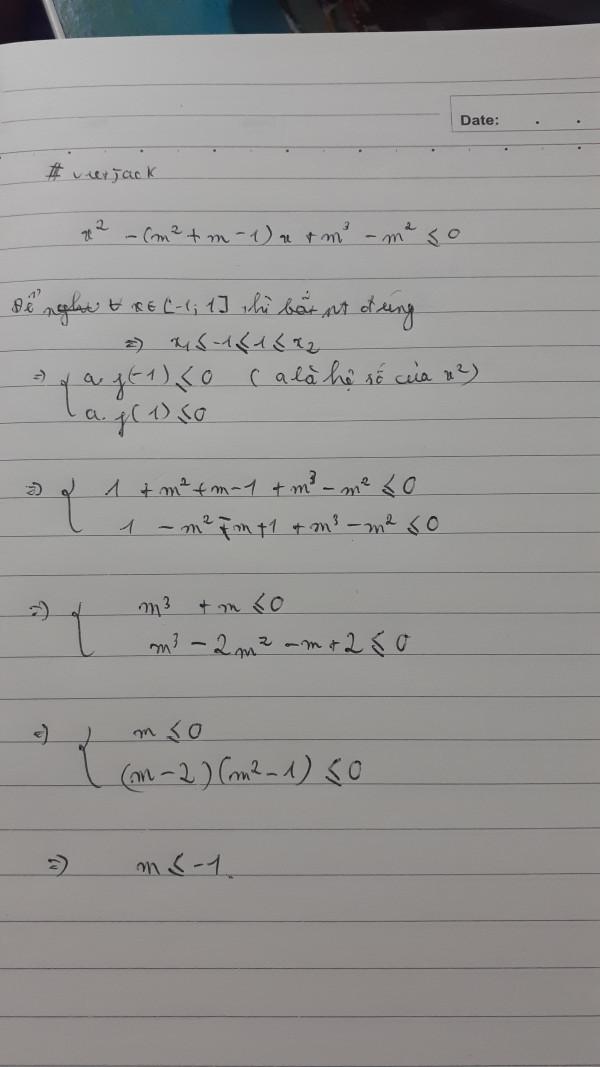 Date: . .
# vietjack
x² - (m² + m - 1) x + m³ - m² ≤ 0
Để ∀ x ∈ [-1; 1] thì bất pt đúng
=> x₁ ≤ -1 ≤ 1 ≤ x₂
=> { a. f(-1) ≤ 0 ( a là hệ số của x²)
a. f(1) ≤ 0
=> { 1 + m² + m - 1 + m³ - m² ≤ 0
1 - m² - m + 1 + m³ - m² ≤ 0
=> { m³ + m ≤ 0
m³ - 2m² - m + 2 ≤ 0
=> { m ≤ 0
(m - 2) (m² - 1) ≤ 0
=> m ≤ -1.